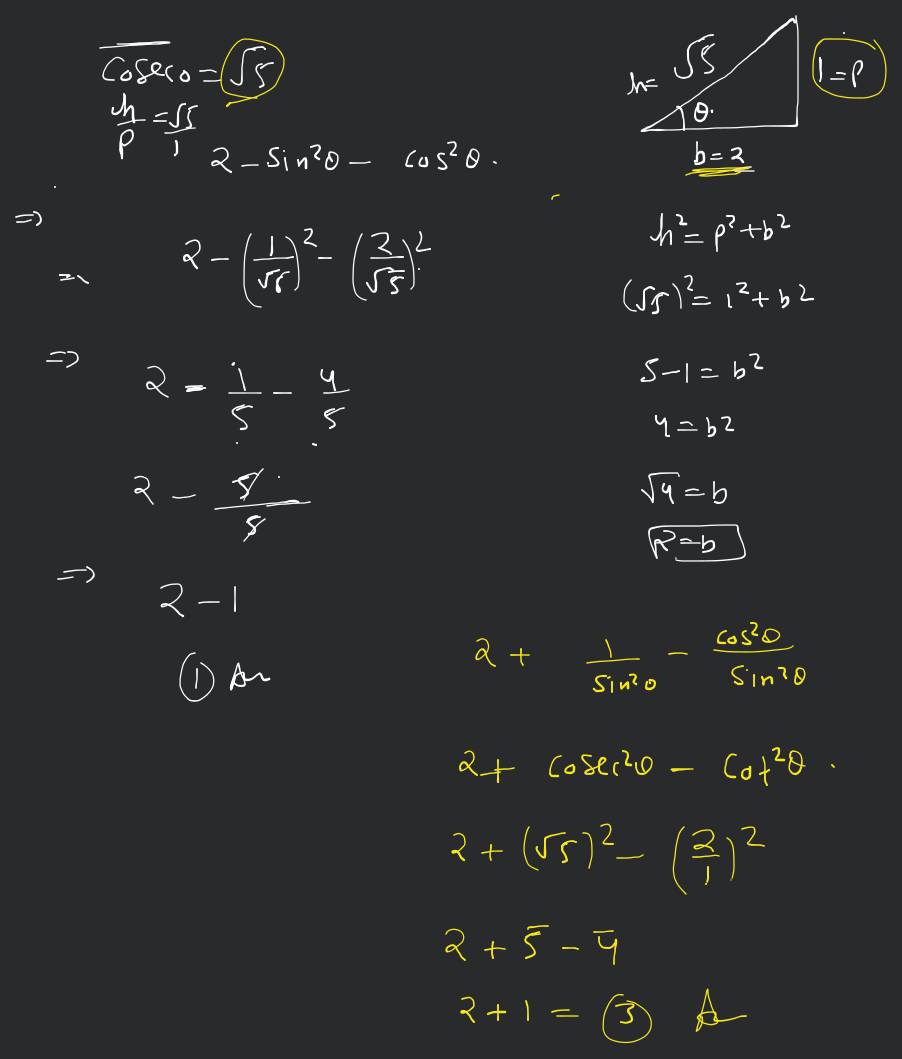 Cosecθ = √5
h/p = √5/1
2 - Sin²θ - cos²θ.
⇒
2 - (1/√5)² - (2/√5)²
⇒ 2 - 1/5 - 4/5
2 - 5/5
⇒ 2 - 1
① Ans
h = √5
1 = p
θ
b = 2
h² = p² + b²
(√5)² = 1² + b²
5 - 1 = b²
4 = b²
√4 = b
2 = b
2 + 1/Sin²θ - cos²θ/Sin²θ
2 + Cosec²θ - Cot²θ.
2 + (√5)² - (2/1)²
2 + 5 - 4
2 + 1 = ③ A